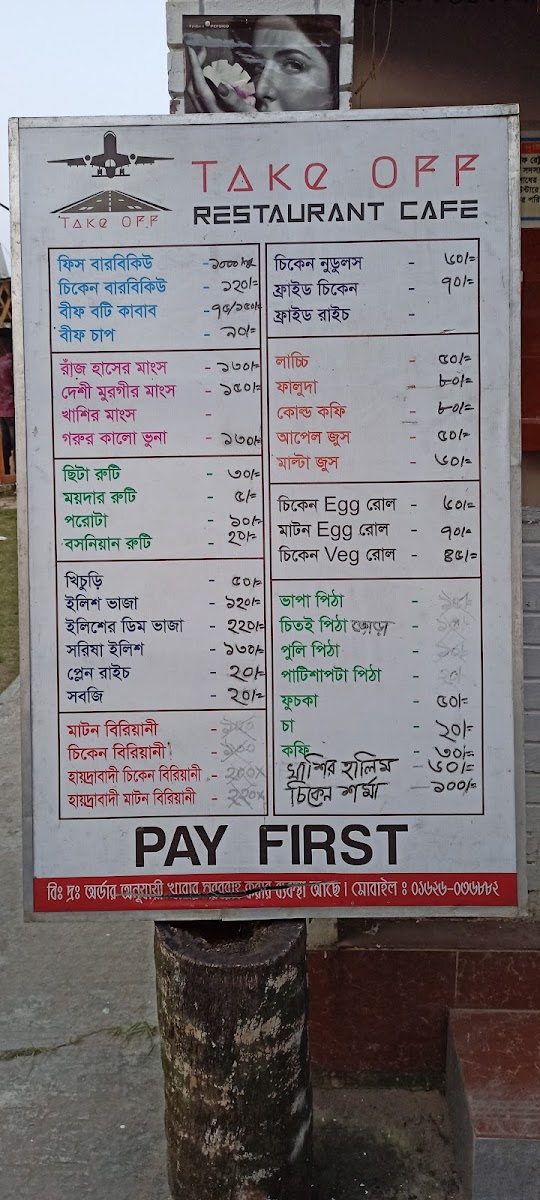 TAKE OFF
TAKE OFF
RESTAURANT CAFE
ফিস বারবিকিউ -১০০০
চিকেন বারবিকিউ -১২০/-
বীফ বটি কাবাব -৭৫/১৫০/-
বীফ চাপ - ৯০/-
রাঁজ হাসের মাংস - ১৬০/-
দেশী মুরগীর মাংস - ১৫০/-
খাশির মাংস -
গরুর কালো ভুনা - ১৬০/-
ছিটা রুটি - ৩০/=
ময়দার রুটি - ৫/=
পরোটা - ১০/-
বসনিয়ান রুটি - ২০/-
খিচুড়ি - ৫০/-
ইলিশ ভাজা - ১২০/=
ইলিশের ডিম ভাজা - ২২০/=
সরিষা ইলিশ - ১৬০/=
প্লেন রাইচ - ২০/-
সবজি - ২০/=
মাটন বিরিয়ানী -
চিকেন বিরিয়ানী -
হায়দ্রাবাদী চিকেন বিরিয়ানী - ২০০
হায়দ্রাবাদী মাটন বিরিয়ানী - ২২০
চিকেন নুডুলস - ৬০/=
ফ্রাইড চিকেন - ৭০/=
ফ্রাইড রাইচ -
লাচ্চি - ৫০/=
ফালুদা - ৮০/=
কোল্ড কফি - ৮০/=
আপেল জুস - ৫০/=
মাল্টা জুস - ৬০/=
চিকেন Egg রোল - ৬০/=
মাটন Egg রোল - ৭০/=
চিকেন Veg রোল - ৪৫/=
ভাপা পিঠা -
চিতই পিঠা -
পুলি পিঠা -
পাটিশাপটা পিঠা -
ফুচকা - ৫০/=
চা - ২০/=
কফি - ৩০/=
খাশির হালিম - ৬০/=
চিকেন শর্মা - ১০০/=
PAY FIRST
বিঃ দ্রঃ অর্ডার অনুযায়ী খাবার সরবরাহ করার ব্যবস্থা আছে। মোবাইল : ০১৬২৬-০৩৬৮৮২